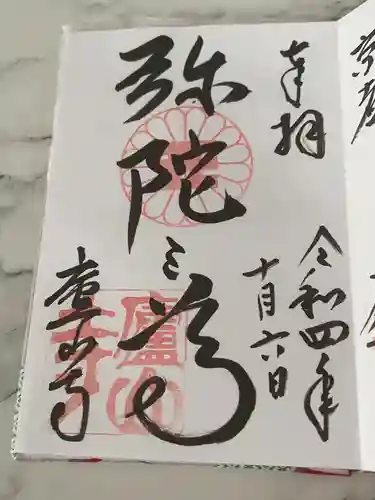 奉拝
令和四年
十月六日
弥陀三尊
廬山寺
廬山
寺